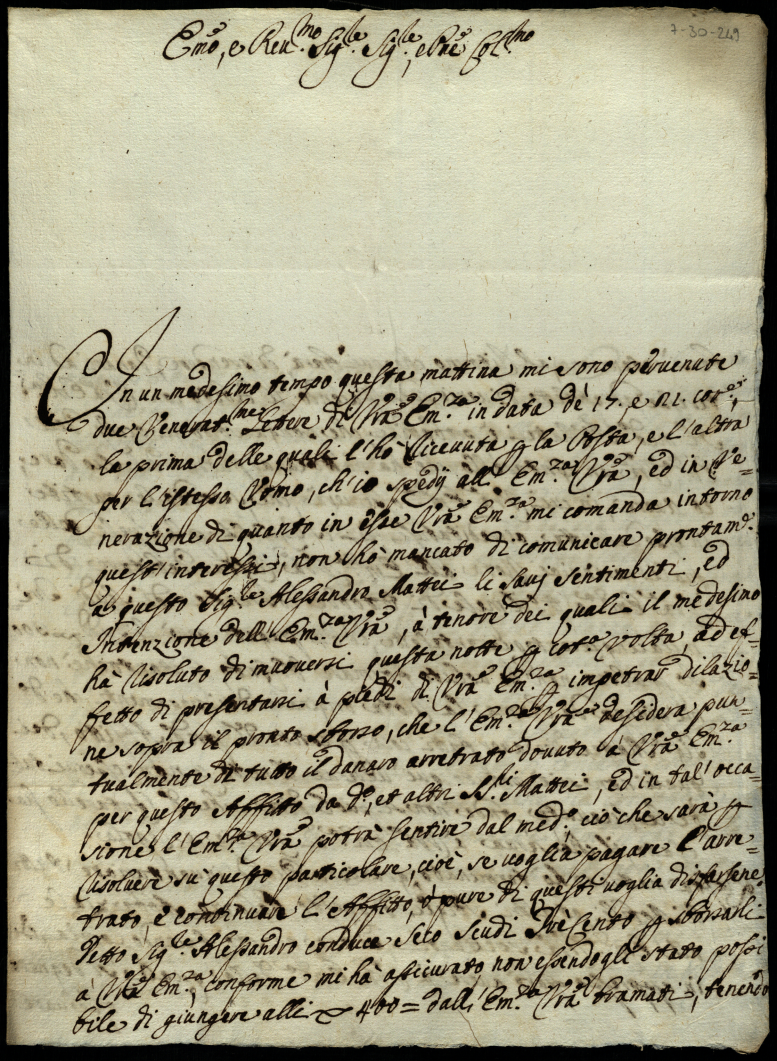 7-30-249
Emo, e Reumo. Sigle. Sigle, e Pne Colmo
In un medesimo tempo questa mattina mi sono pervenute
due Venerat.me Lettere di Vrã Em.za in data de' 17. e 21. cor.e,
la prima delle quali l'hò ricevuta p la Posta, e l'altra
per l'istesso Uomo, ch'io spedij all' Em.za Vrã, ed in Ve=
nerazione di quanto in esse Vrã Em.za mi comanda intorno
questi interessi, non hò mancato di comunicare prontam.e
a questo Sig.le Alessandro Mattei li savj sentimenti, ed
Intenzione dell' Em.za Vrã, à tenore dei quali il medesimo
hà risoluto di muoversi questa notte p cot.a volta, ad ef=
fetto di presentarsi à piedi di Vrã Em.za p impetrar dilazio=
ne sopra il pronto sborso, che l'Em.za Vrã desidera pun=
tualmente di tutto il danaro arretrato dovuto à Vrã Em.za
per questo Affitto da d.o, et altri SS.li Mattei, ed in tal' occa=
sione l'Em.za Vrã potrà sentire dal med.o ciò che sarà p
risolvere sù questo particolare, cioè, se voglia pagare l'arre=
trato, e continuare l'Affitto, ò pure di questi voglia disfarsene.
Detto Sig.le Alessandro conduce seco scudi Trècento p sborsarli
à Vrã Em.za, conforme mi hà assicurato, non essendogli stato possi
bile di giungere alli 400= dall' Em.za Vrã bramati, tenendo